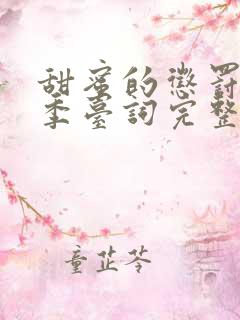 甜蜜的懲罰
季臺詞完整
童芷苓